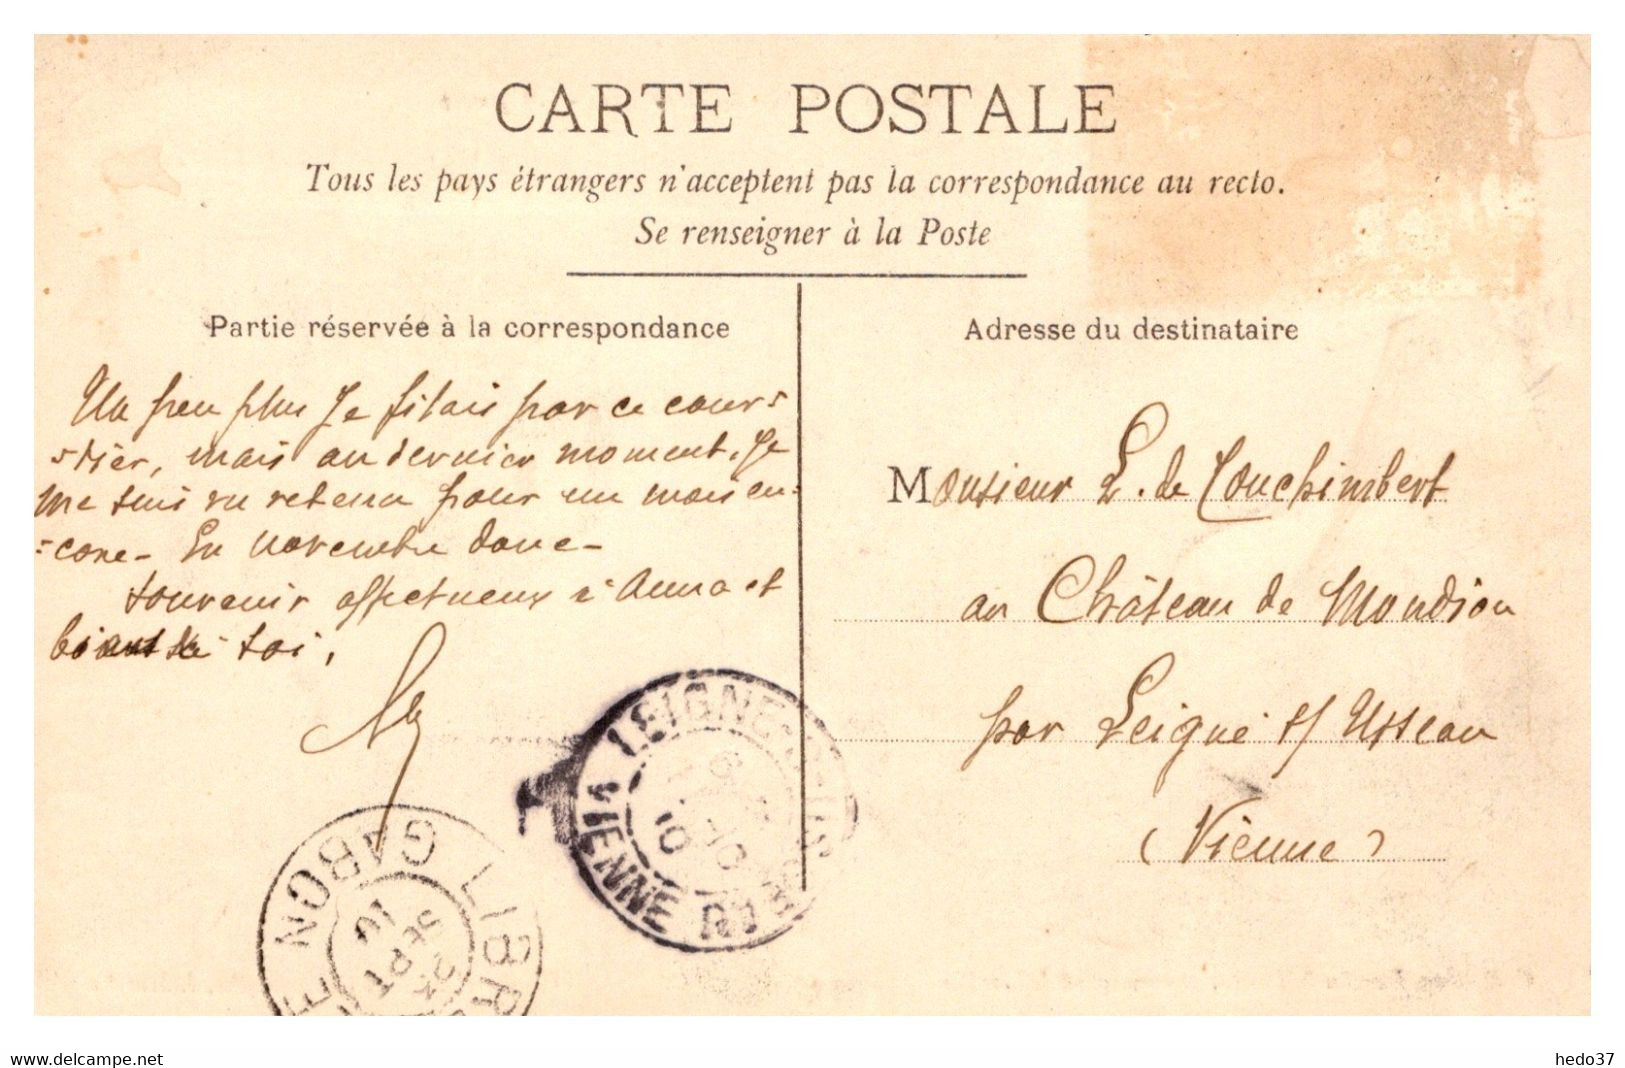 CARTE POSTALE
Tous les pays étrangers n'acceptent pas la correspondance au recto.
Se renseigner à la Poste
Partie réservée à la correspondance
Adresse du destinataire
Un peu plus je filais par ce cour=
=rier, mais au dernier moment, je
me suis vu retenu pour un mois en=
=core - En novembre donc -
Souvenir affectueux à Anna et
à toi,
Monsieur L. de Couhimbert
au Château de Mondion
par Leigné s/ Usseau
(Vienne)
LEIGNE-S-USSEAU
10
VIENNE
LIBREVILLE
GABON
SEPT
10
www.delcampe.net
hedo37